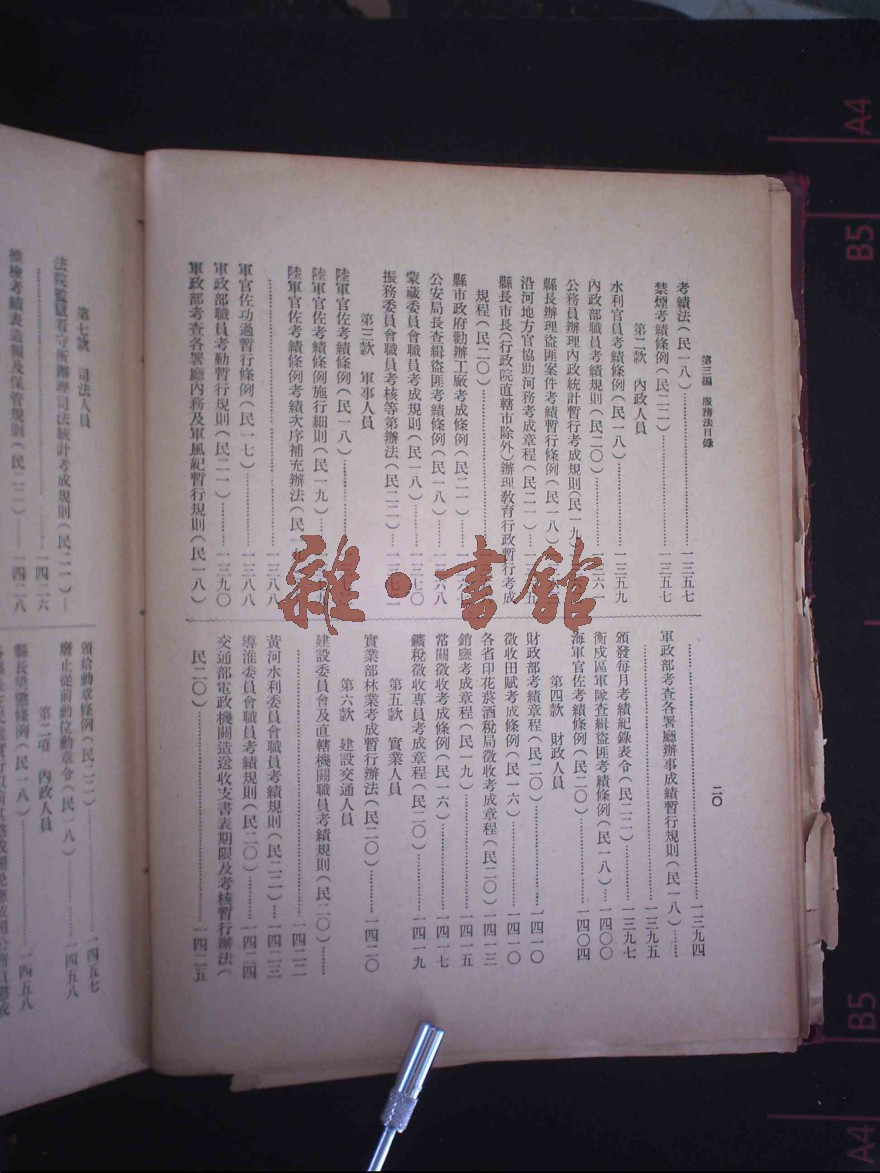 第三編 服務法目錄
二〇
考績法（民一八）……一三五七
禁煙考績條例（民二二）……一三五七
第二款 內政人員
水利官員考績條例（民一八）……一三五九
內政部職員考績規則（民二〇）……一三六一
公務員辦理內政統計暫行考成規則（民一九）
縣長辦理盜匪案件考績暫行條例（民一八）
沿河地方官協助河務考成章程（民二一）
縣長市長（行政院直轄市除外）辦理教育行政暫行考成
規程（民二〇）
縣市政府勸辦工廠考成條例（民二一）
公安局長查緝盜匪考績條例（民一八）……一三六八
蒙藏委員會職員考成規則（民一八）……一三七〇
振務委員會職員考核等第辦法（民二二）
第三款 軍事人員
陸軍官佐考績條例（民一八）
陸軍官佐考績條例施行細則（民一九）
陸軍官佐考績條例考績次序補充辦法（民一九
……一三八八
軍官佐功過暫行條例（民一七）……一三八八
軍政部職員考勤暫行規則（民二一）……一三九〇
軍政部考查各署廳內務及軍風紀暫行規則（民一八）
……一三九四
軍政部考查各署廳辦事成績暫行規則（民一八）……
……一三九五
頒發每月考績紀錄表令（民二二）……一三九七
衡戍區軍隊查緝盜匪考績條例（民一八）…一四〇〇
海軍官佐考績條例（民二〇）……一四〇四
第四款 財政人員
財政部考績章程（民二〇）……一四一〇
徵收田賦考成條例（民一六）……一四一〇
各省印花菸酒稅局徵收考成章程（民二〇）一四一三
銷鹽考成章程（民一九）……一四一五
常關徵收考成條例（民一六）……一四一七
鑛稅徵收專員考成章程（民二〇）……一四一九
第五款 實業人員
實業部林業考成暫行辦法（民二〇）……一四二〇
第六款 建設交通人員
建設委員會及直轄機關職員考績規則（民二〇）……
……一四二二
黃河水利委員會職員考績規則（民二二）…一四二三
導淮委員會職員考績規則（民二〇）……一四二四
交通部電政機關造送收支書表期限及考核暫行辦法（
民二〇）……一四二五
第七款 司法人員
法院監獄看守所辦理司法統計考成規則（民二一）—
……一四二六
推檢考績表造報及保管規則（民二二）——一四二八
頒給勳章條例（民二二）……一四五七
廢止從前勳位勳章令（民一八）……一四五八
第二項 內政人員
縣長獎懲條例（民一八）……一四五八
雜·書館
A4
B5
B5
A4